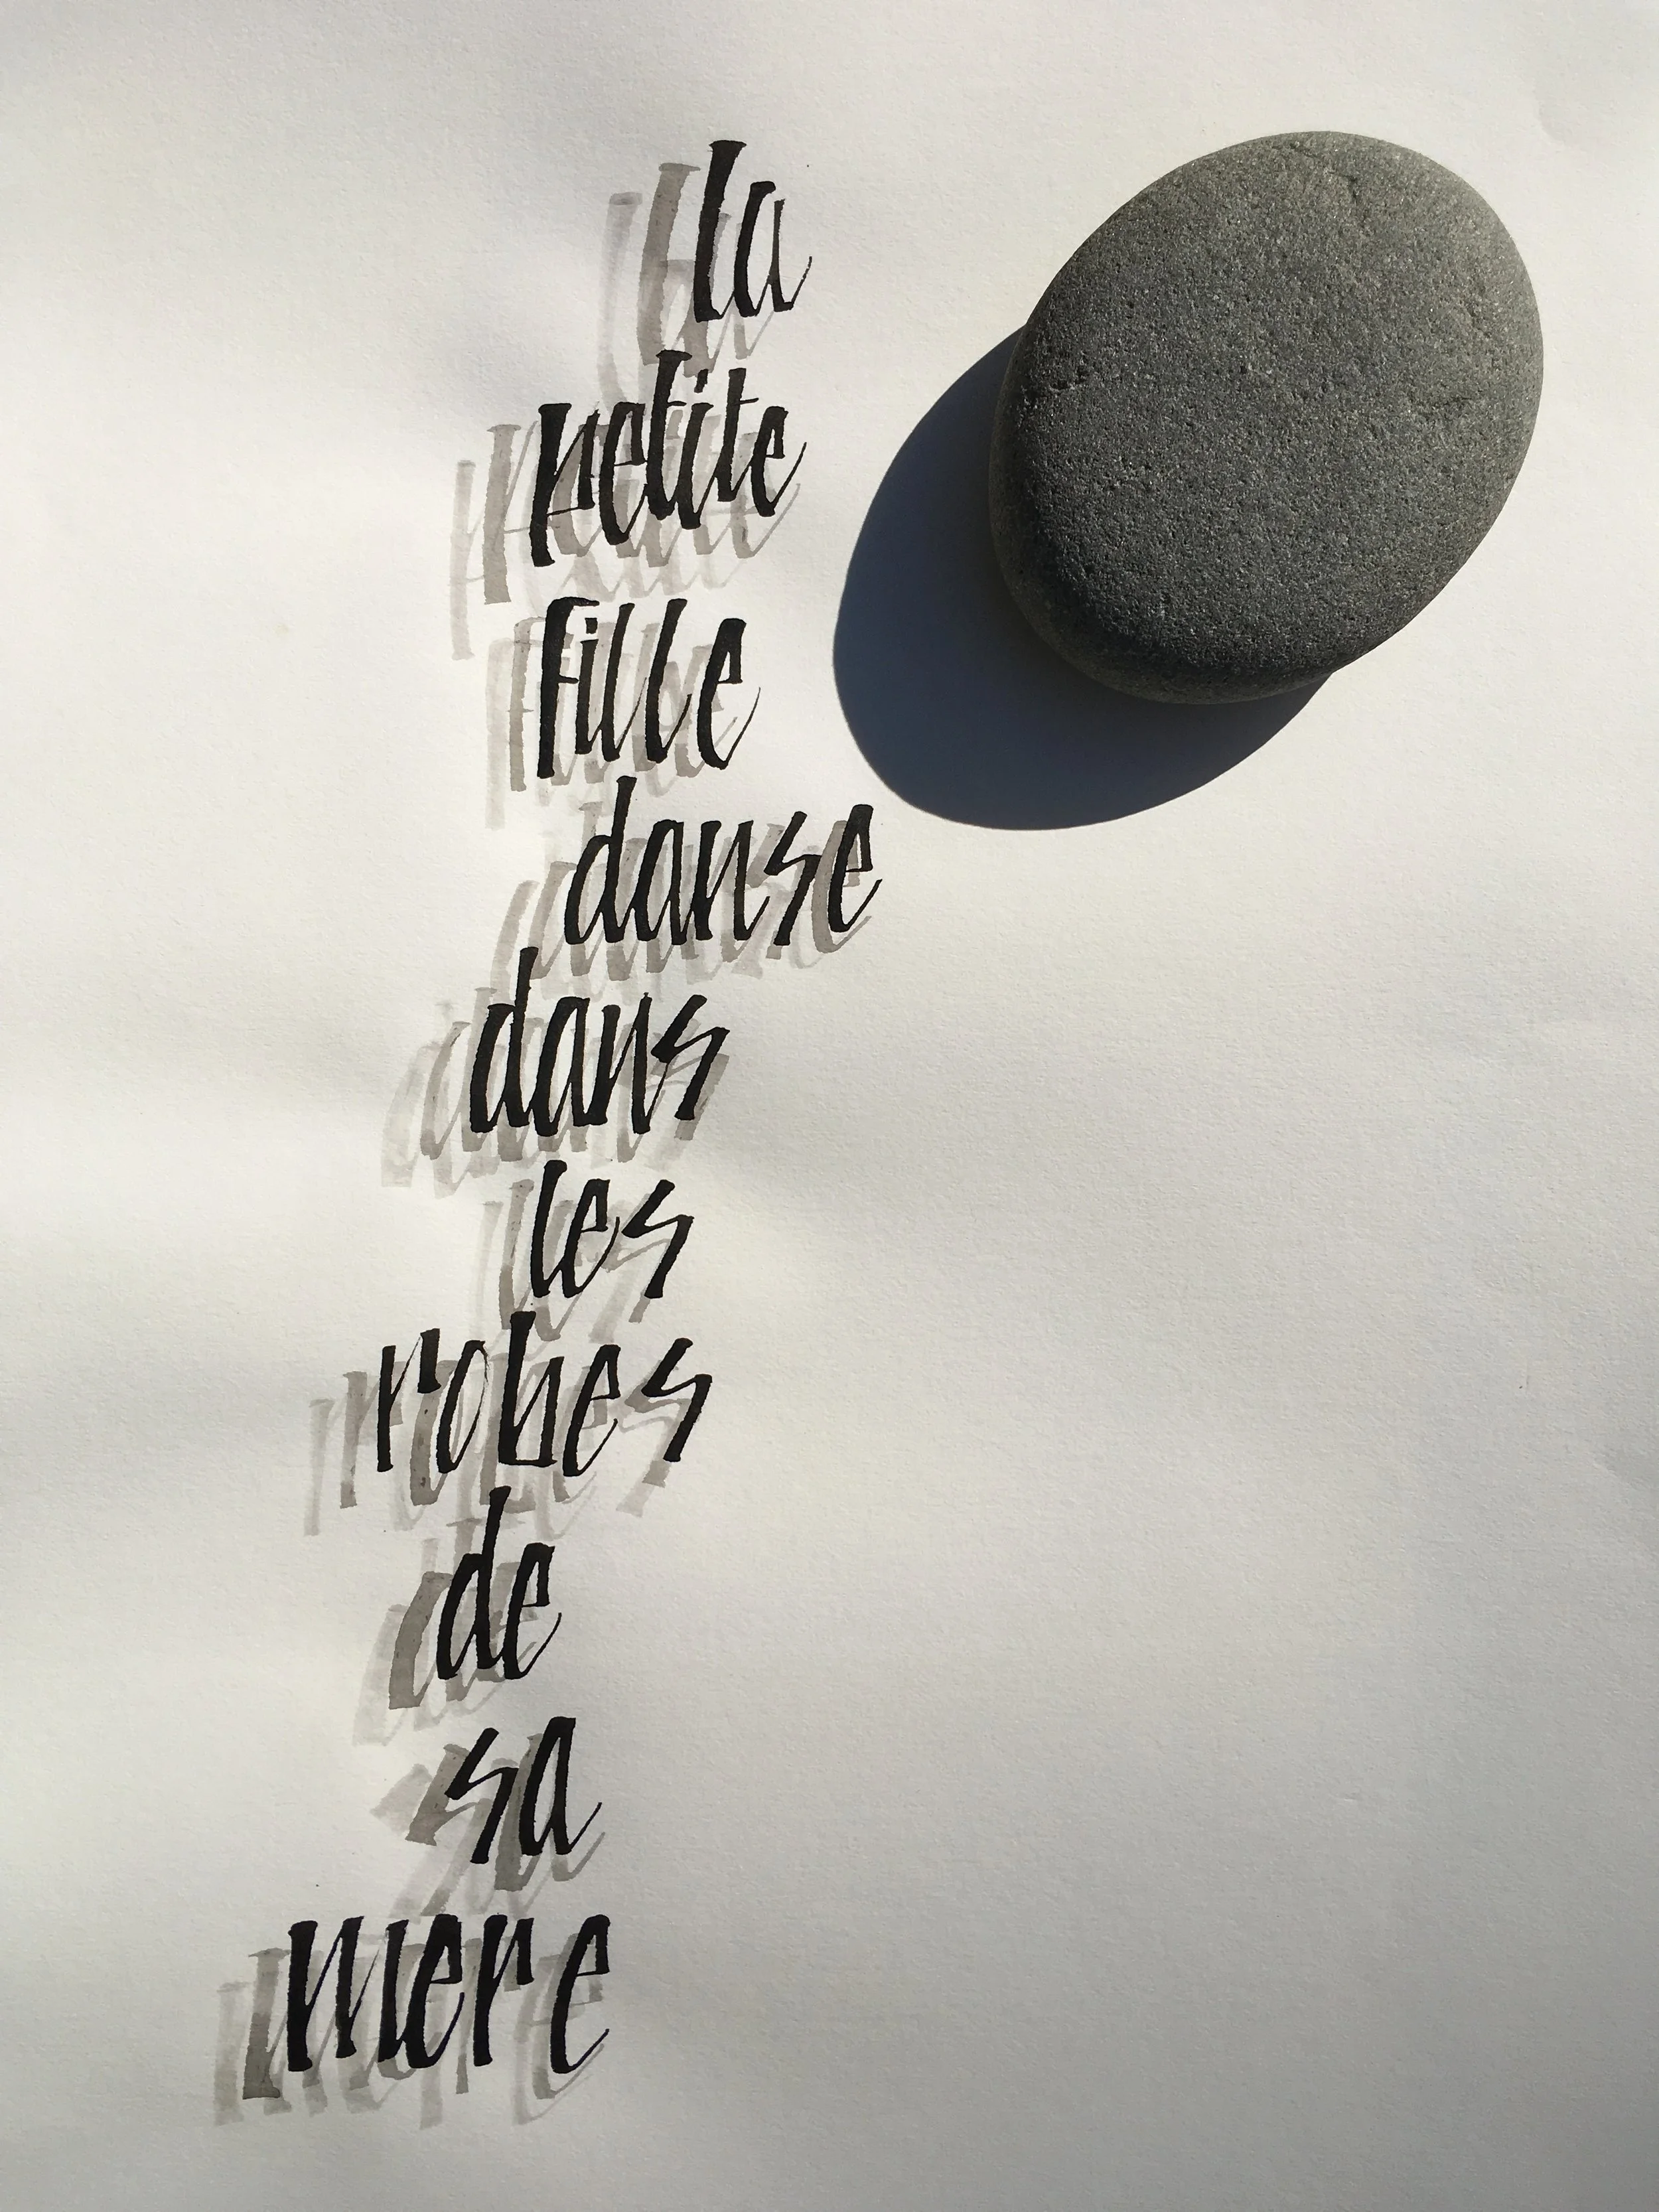 la
petite
fille
danse
dans
les
robes
de
sa
mere